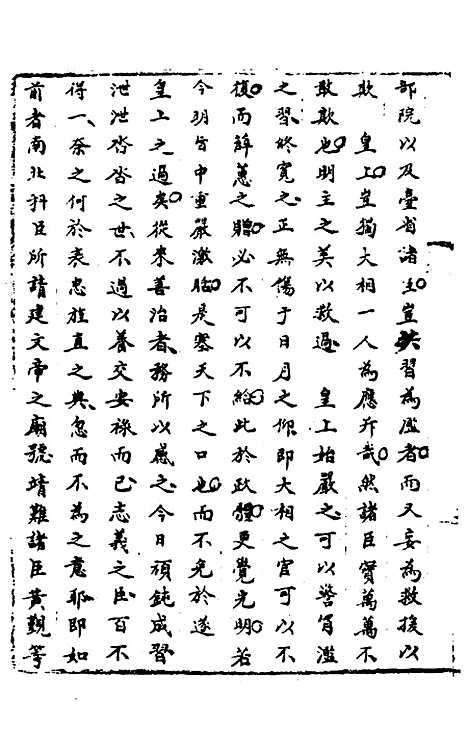 部院以及臺省諸臣豈英習為濫者而又妄為救援以
欺　皇上豈獨大相一人為應斥哉然諸臣實萬萬不
敢欺也明主之美以救過　皇上始嚴之可以警胥濫
之習終寬之正無傷于日月之仰即大相之官可以不
復而鮮蔥之贈必不可以不給此於政體更覺光明若
今明旨中重嚴激臨是塞天下之口也而不免於遂
皇上之過矣從來善治者務所以感之今日頑鈍成習
泄泄沓沓之世不過以養交安祿而已志義之臣百不
得一奈之何於表忠旌直之典忽而不為之意耶即如
前者南北科臣所請建文帝之廟號靖難諸臣黃觀等